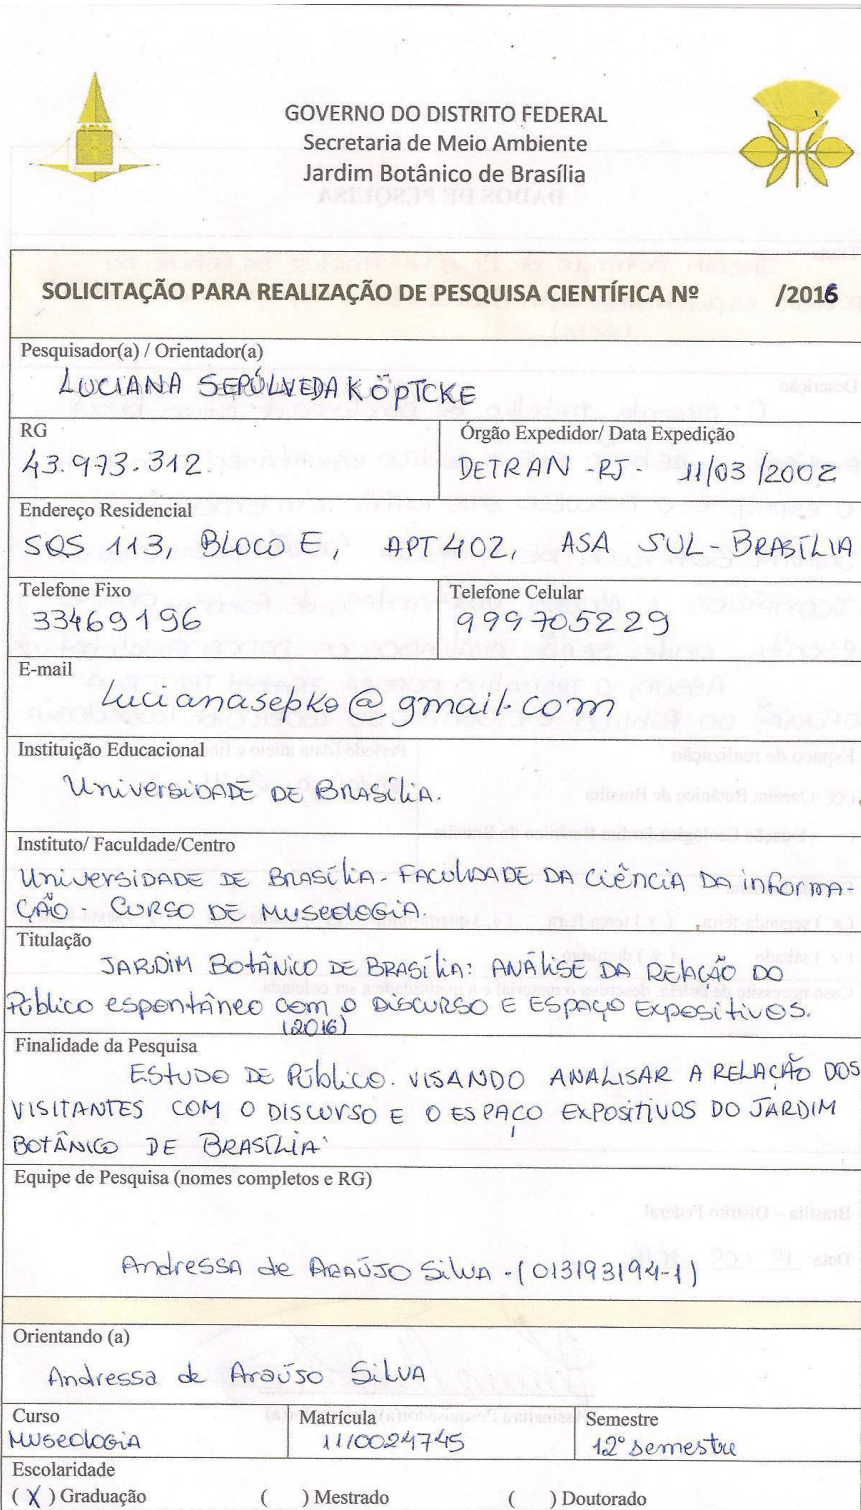 GOVERNO DO DISTRITO FEDERAL
Secretaria de Meio Ambiente
Jardim Botânico de Brasília
SOLICITAÇÃO PARA REALIZAÇÃO DE PESQUISA CIENTÍFICA Nº /2016
Pesquisador(a) / Orientador(a)
LUCIANA SEPÚLVEDA KÖPTCKE
RG
43.973.312
Órgão Expedidor/ Data Expedição
DETRAN - RJ - 11/03/2002
Endereço Residencial
SQS 113, BLOCO E, APT 402, ASA SUL - BRASÍLIA
Telefone Fixo
33469196
Telefone Celular
999705229
E-mail
lucianasepko@gmail.com
Instituição Educacional
Universidade de Brasília.
Instituto/ Faculdade/Centro
Universidade de Brasília - Faculdade da Ciência da Informa-
ção - Curso de Museologia.
Titulação
Jardim Botânico de Brasília: Análise da relação do
Público espontâneo com o discurso e espaço expositivos.
(2016)
Finalidade da Pesquisa
Estudo de Público. Visando analisar a relação dos
visitantes com o discurso e o espaço expositivos do Jardim
Botânico de Brasília
Equipe de Pesquisa (nomes completos e RG)
Andressa de Araújo Silva - (013193194-1)
Orientando (a)
Andressa de Araújo Silva
Curso
Museologia
Matrícula
11/0024745
Semestre
12º semestre
Escolaridade
( X ) Graduação ( ) Mestrado ( ) Doutorado